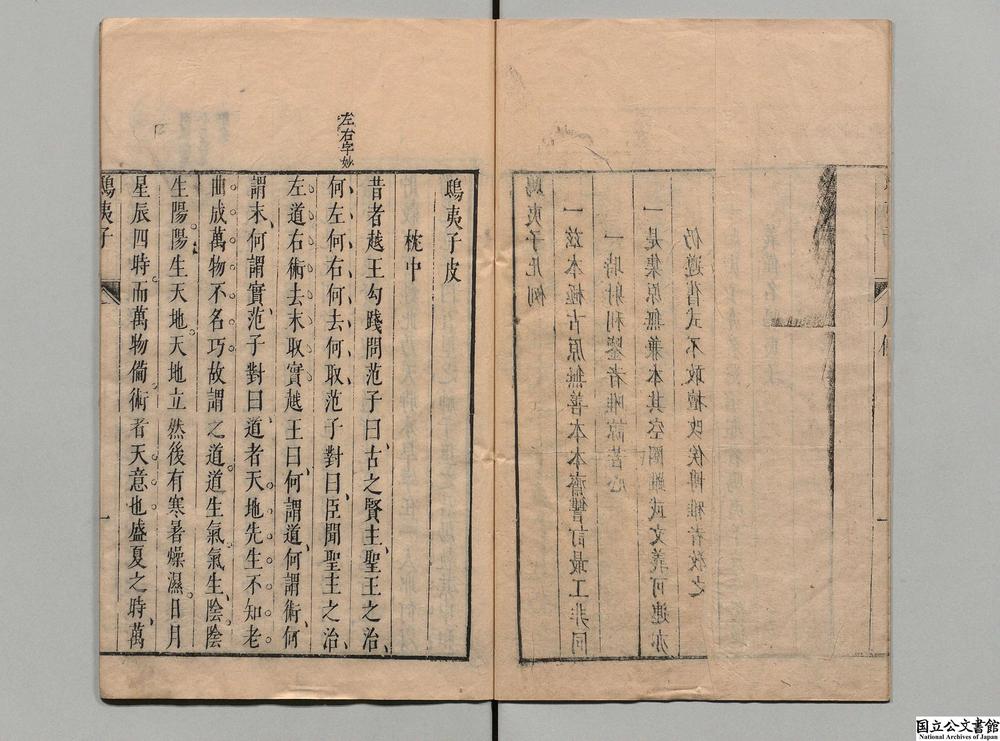 鴟夷子凡例
一茲本極古原無善本本齋讐訂最工非同
一時射利鑒者唯諒苦心
一是集原無兼本其空闕雖或文義可連亦
仍遵舊式不敢擅改俟博雅者教之
左右字妙
鴟夷子皮
枕中
昔者越王勾踐問范子曰古之賢主聖王之治
何左何右何去何取范子對曰臣聞聖主之治
左道右術去末取實越王曰何謂道何謂術何
謂末何謂實范子對曰道者天地先生不知老
曲成萬物不名巧故謂之道道生氣氣生陰陰
生陽陽生天地天地立然後有寒暑燥濕日月
星辰四時而萬物備術者天意也盛夏之時萬
鴟夷子 一
国立公文書館
National Archives of Japan